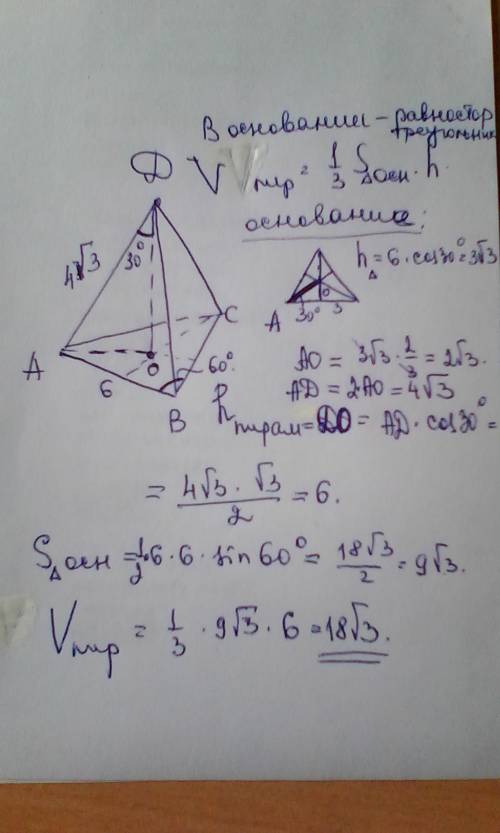 В основании - равностор
треугольник
V Vпир = 1/3 S△осн · h
основание:
Д
4√3
30°
h△ = 6 · cos30° = 3√3
A
30°
3
C
A
O
60°
6
B
AO = 3√3 · 2/3 = 2√3.
AD = 2AO = 4√3
hпирам = DO = AD · cos30° =
= 4√3 · √3 / 2 = 6.
S△осн = 1/2 · 6 · 6 · sin 60° = 18√3 / 2 = 9√3.
Vпир = 1/3 · 9√3 · 6 = 18√3.